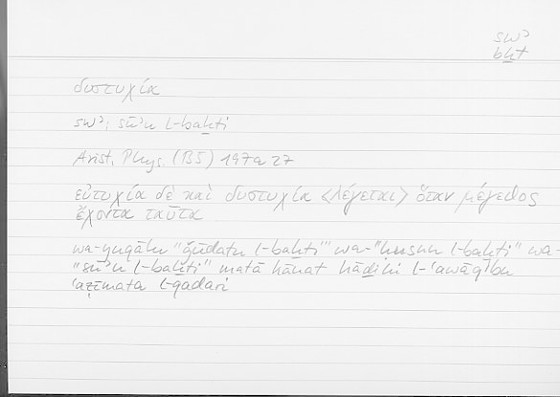 swʾ
bḫt
δυστυχία
swʾ; sūʾu l-baḫti
Arist. Phys. (B5) 197a27
εὐτυχία δὲ καὶ δυστυχία <λέγεται> ὅταν μέγεθος
ἔχοντα ταῦτα
wa-yuqālu "ǧūdatu l-baḫti" wa-"ḥusnu l-baḫti" wa-
"sūʾu l-baḫti" matā kānat hāḏihi l-ʿawāqibu
ʿaẓīmata l-qadari